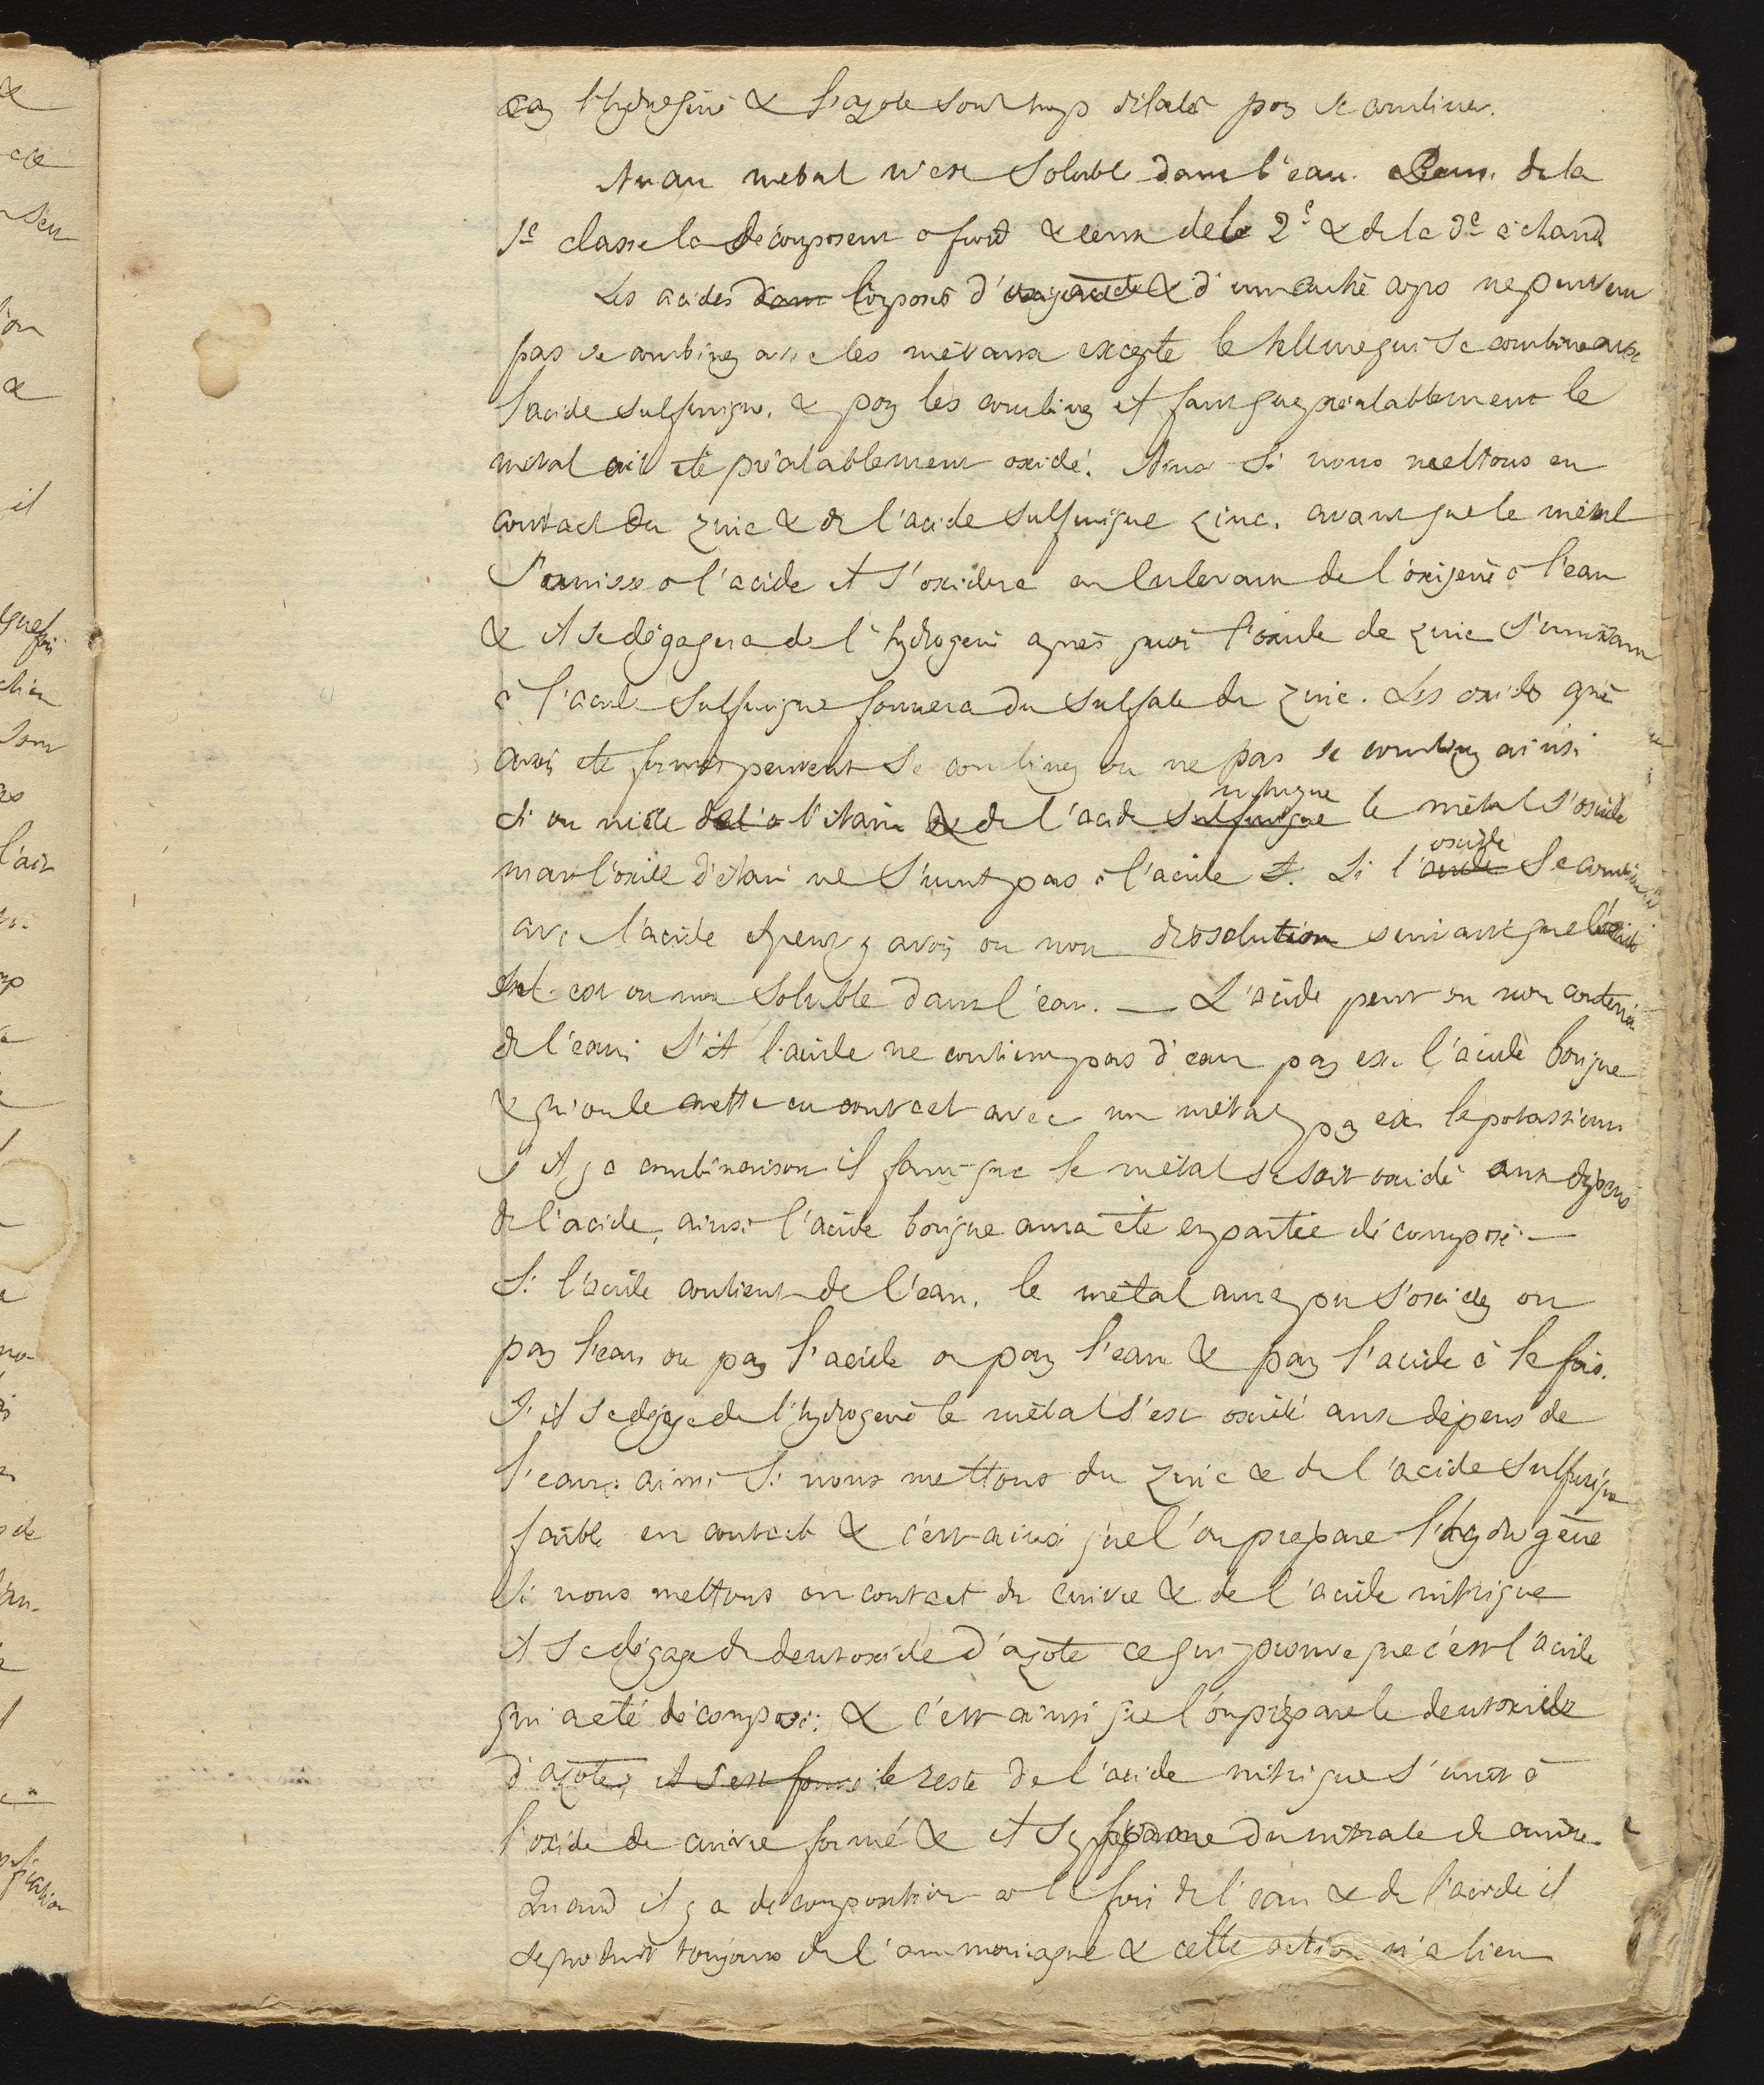 car l'hydrogène & l'azote sont trop dilatés pour se combiner.
Aucun métal n'est soluble dans l'eau. Ceux de la
1e classe la décomposent a froid & ceux de la 2e & de la 3e à chaud
Les acides dans composés d'oxigène & d'un autre corps ne peuvent
pas se combiner avec les métaux excepté le tellure qui se combine avec
l'acide sulfurique, & pour les combiner il faut que préalablement le
métal ait été préalablement oxidé. Ainsi si nous mettons en
contact du zinc & de l'acide sulfurique zinc. avant que le métal
s'unisse a l'acide il s'oxidera en enlevant de l'oxigene à l'eau
& il se dégagera de l'hydrogene après quoi l'oxide de zinc s'unissant
à l'acide sulfurique formera du sulfate de zinc. Les oxides après
avoir été formés peuvent se combiner ou ne pas se combiner ainsi
nitrique
si on mêle de l'a l'étain & de l'acide sulfurique le métal s'oxide
oxide
mais l'oxide d'étain ne s'unit pas à l'acide. Si l'acide se combine
avec l'acide il peut y avoir ou non dissolution suivant que l'oxide
sel est ou non soluble dans l'eau. — L'acide peut ou non contenir
de l'eau; s'il l'acide ne contient pas d'eau par ex. l'acide borique
& qu'on le mette en contact avec un métal par ex. le potassium
s'il y a combinaison il faut que le métal se soit oxidé aux dépens
de l'acide, ainsi l'acide borique aura été en partie décomposé. —
Si l'acide contient de l'eau, le métal aura pu s'oxider ou
par l'eau ou par l'acide ou par l'eau & par l'acide à la fois.
S'il se dégage de l'hydrogene le métal s'est oxidé aux dépens de
l'eau: ainsi si nous mettons du zinc & de l'acide sulfurique
faible en contact & c'est ainsi que l'on prépare l'hydrogène
Si nous mettons en contact du cuivre & de l'acide nitrique
il se dégage du deutoxide d'azote ce qui prouve que c'est l'acide
qui a été décomposé; & c'est ainsi que l'on prépare le deutoxide
d'azote, il s'est formé le reste de l'acide nitrique s'unit à
l'oxide de cuivre formé & il se forme du nitrate de cuivre.
Quand il y a décomposition a la fois de l'eau & de l'acide il
se produit toujours de l'ammoniaque & cette action n'a lieu